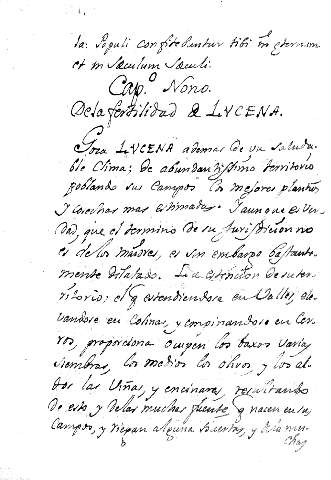 ta: Populi confitebuntur tibi in eternum
et in sæculum sæculi.
Cap.º Nono.
De la fertilidad de LVCENA.
Goza LVCENA ademas de su saluda-
ble Clima; de abundantissimo territorio
poblando sus Campos los mejores plantios
y cosechas mas estimadas. Y aunque es ver-
dad, que el termino de su Jurisdicion no
es de los maiores, es sin embargo bastante-
mente dilatado. La extension de su ter-
ritorio; el q estendiendose en Valles, ele-
vandose en Colinas, y empinandose en Cer-
ros, proporciona ocupen los baxos varias
siembras, los medios los olivos, y los al-
tos las Viñas, y encinares, resultando
de esto, y de las muchas fuentes q nacen en sus
Campos, y riegan alguna's huertas, y de la mu-
chas